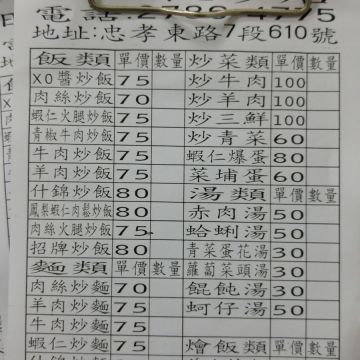 電話:2788-4775
地址:忠孝東路7段610號
飯類 單價 數量 炒菜類 單價 數量
XO醬炒飯 75 炒牛肉 100
肉絲炒飯 70 炒羊肉 100
蝦仁火腿炒飯 75 炒三鮮 100
青椒牛肉炒飯 75 炒青菜 60
牛肉炒飯 75 蝦仁爆蛋 80
羊肉炒飯 75 菜埔蛋 60
什錦炒飯 80 湯類 單價 數量
鳳梨蝦仁肉鬆炒飯 80 赤肉湯 50
肉絲火腿炒飯 75 蛤蜊湯 50
招牌炒飯 80 青菜蛋花湯 30
麵類 單價 數量 蘿蔔菜頭湯 30
肉絲炒麵 70 餛飩湯 30
羊肉炒麵 75 蚵仔湯 50
牛肉炒麵 75
燴飯類 單價 數量